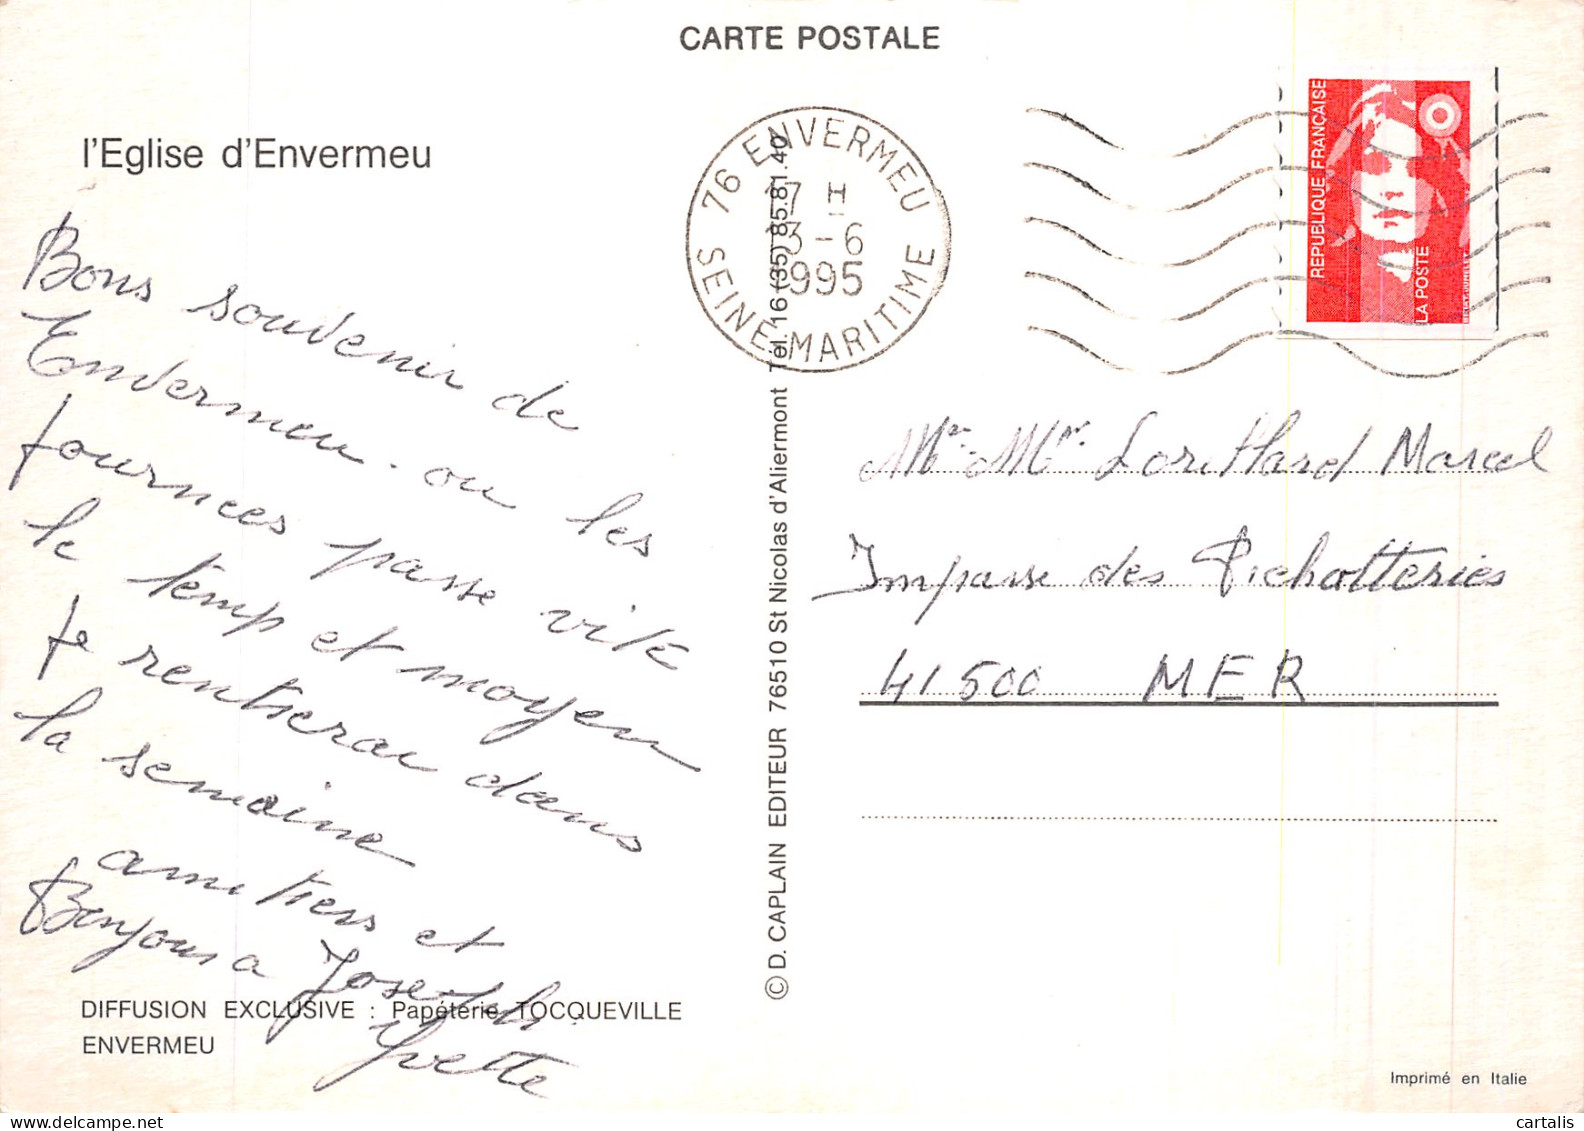 CARTE POSTALE
l'Eglise d'Envermeu
Bons souvenir de
Envermeu. ou les
journees passe vite
le temp et moyen
Je rentrerai dans
la semaine
amitiers et
Bonjour a Joseph.
Yvette
DIFFUSION EXCLUSIVE : Papéterie TOCQUEVILLE
ENVERMEU
© D. CAPLAIN EDITEUR 76510 St Nicolas d'Aliermont Tél. 16 (35) 85.81.40
76 ENVERMEU
17 H
3-6
1995
SEINE-MARITIME
REPUBLIQUE FRANÇAISE
LA POSTE
Mr Lorillard Marcel
Impasse des Pichotteries
41500 MER
Imprimé en Italie
cartalis